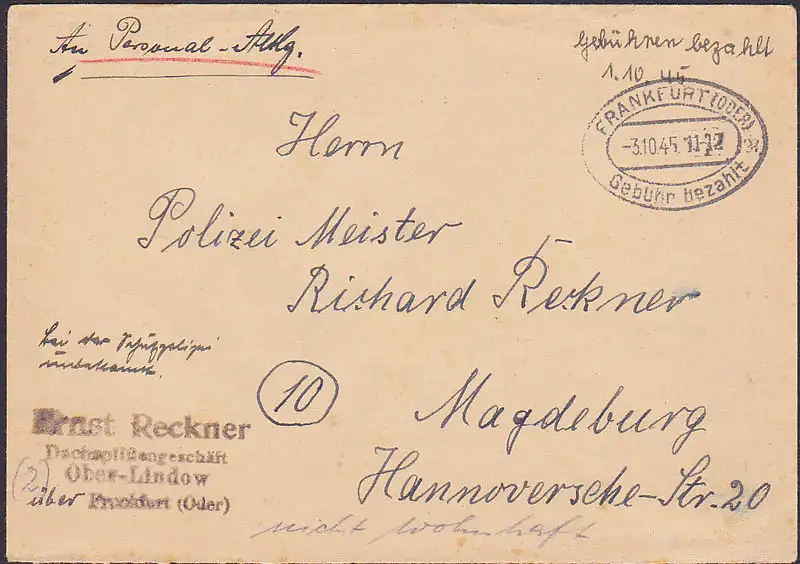 An Personal-Abtlg.
Gebühren bezahlt
1.10.45
FRANKFURT (ODER) 2
-3.10.45. 11-12
Gebühr bezahlt
Herrn
Polizei Meister
Richard Reckner
bei der Schutzpolizei
unbekannt.
10
Magdeburg
Hannoversche-Str. 20
Ernst Reckner
Dachspließengeschäft
Ober-Lindow
(2)
über Frankfurt (Oder)
nicht wohnhaft